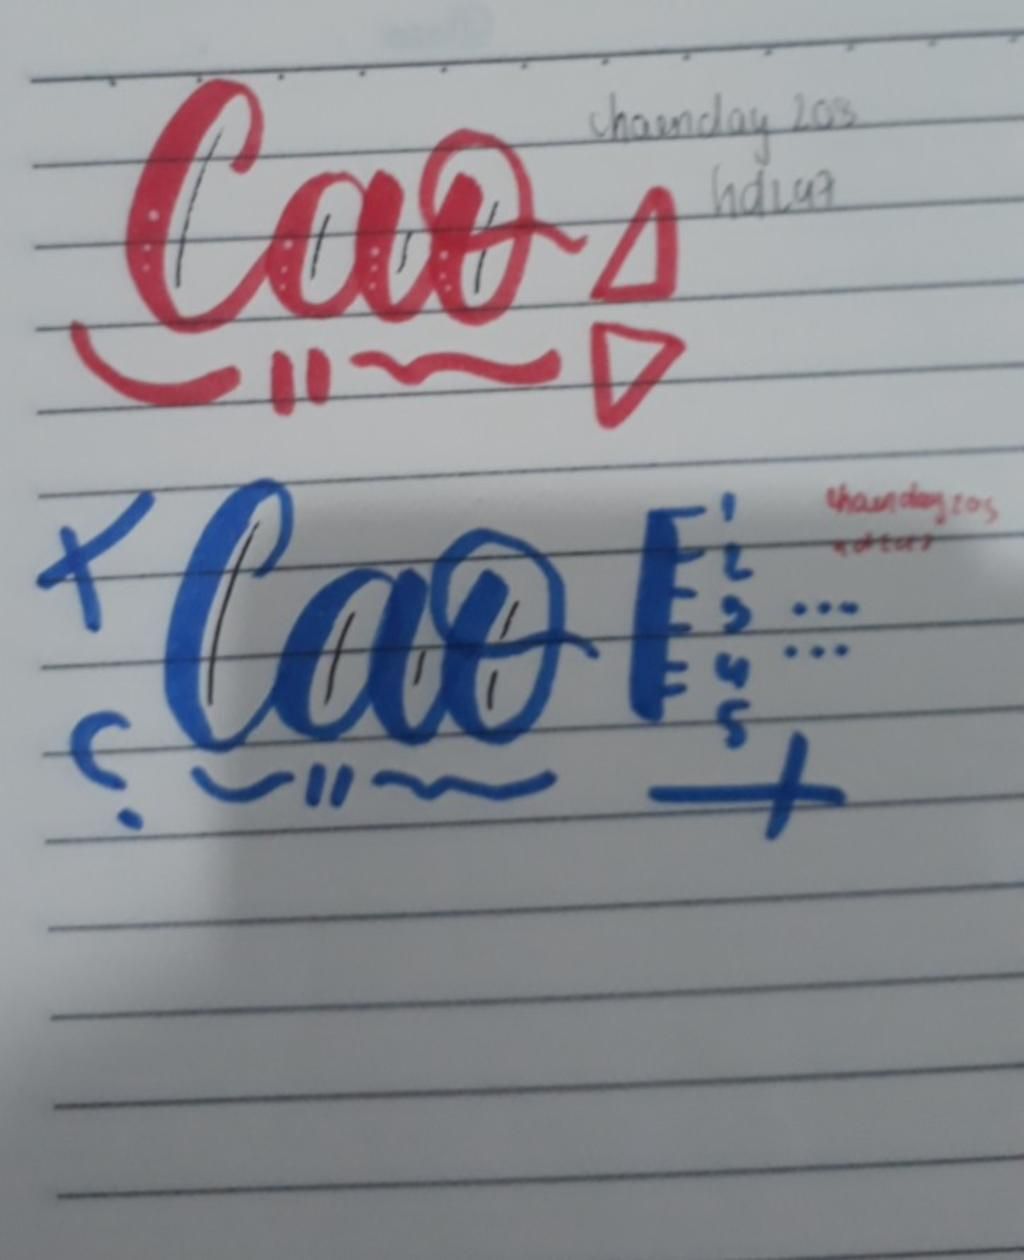 Cao
chaenday 203
hdla7
Cao
1
2
3 ...
4 ...
5
chaenday 203